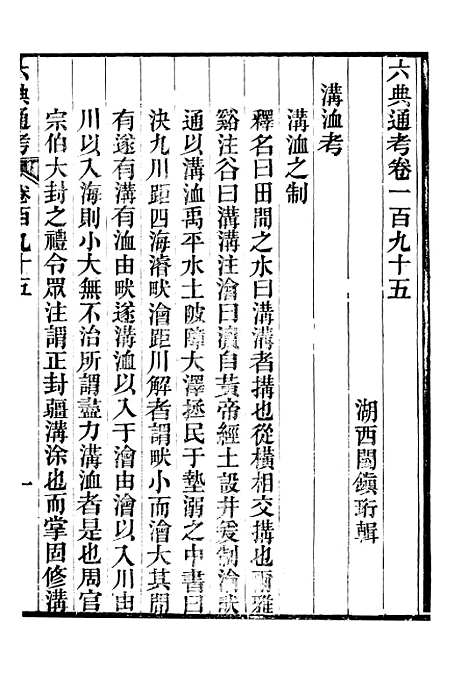 六典通考卷一百九十五
湖西閻鎭珩輯
溝洫考
溝洫之制
釋名曰田間之水曰溝溝者搆也從橫相交搆也爾雅
谿注谷曰溝溝注澮曰瀆自黃帝經土設井爰制澮畎
通以溝洫禹平水土陂障大澤拯民于墊溺之中書曰
決九川距四海濬畎澮距川解者謂畎小而澮大其間
有遂有溝有洫由畎遂溝洫以入于澮由澮以入川由
川以入海則小大無不治所謂盡力溝洫者是也周官
宗伯大封之禮令眾注謂正封疆溝涂也而掌固修溝
六典通考
卷百九十五
一